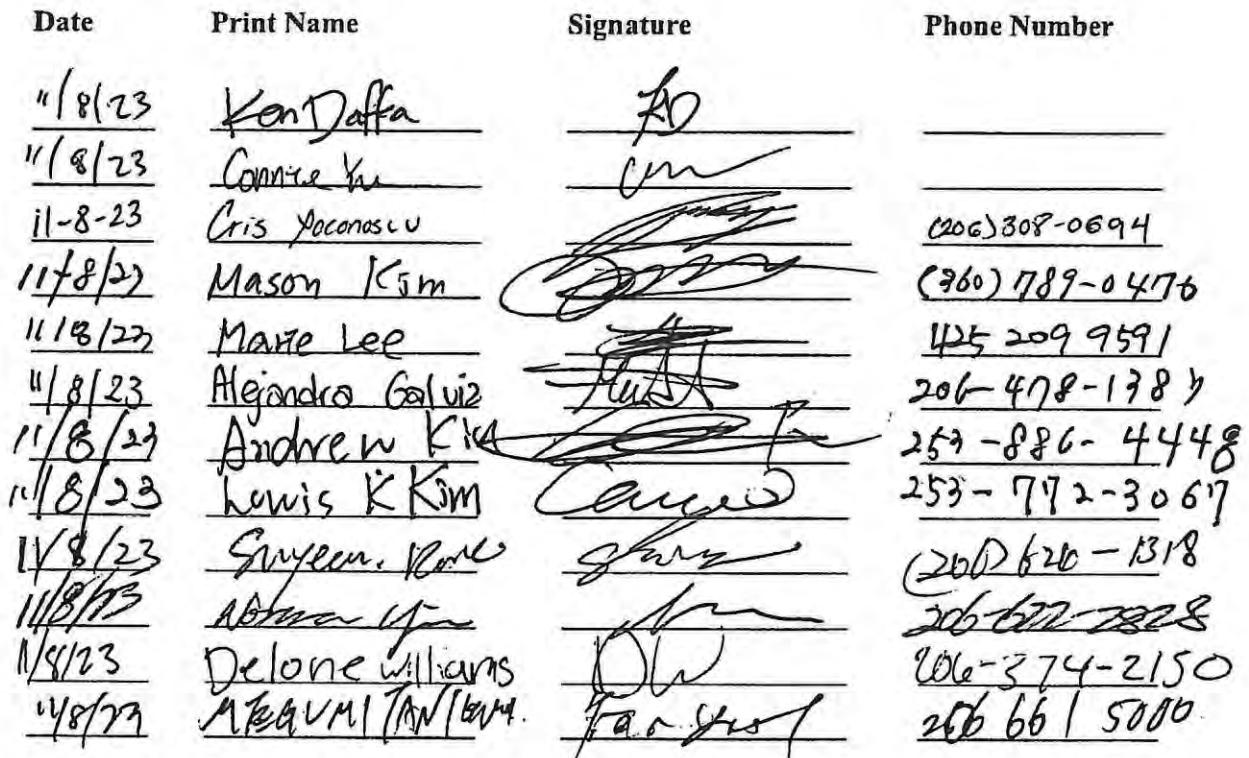 Date Print Name Signature Phone Number
11/8/23 Ken Daffa KD
11/8/23 Connie Yu
11-8-23 Cris (206)308-0694
11/8/23 Mason Kim (360) 789-0476
11/8/23 Marie Lee 425 209 9591
11/8/23 Alejandra Galviz 206-478-138
11/8/23 Andrew Kim 253-886-4448
11/8/23 Lewis K Kim 253-772-3067
11/8/23
11/8/23
11/8/23 Delone Williams DW 206-374-2150
11/8/23 MEGUMI 206 661 5000